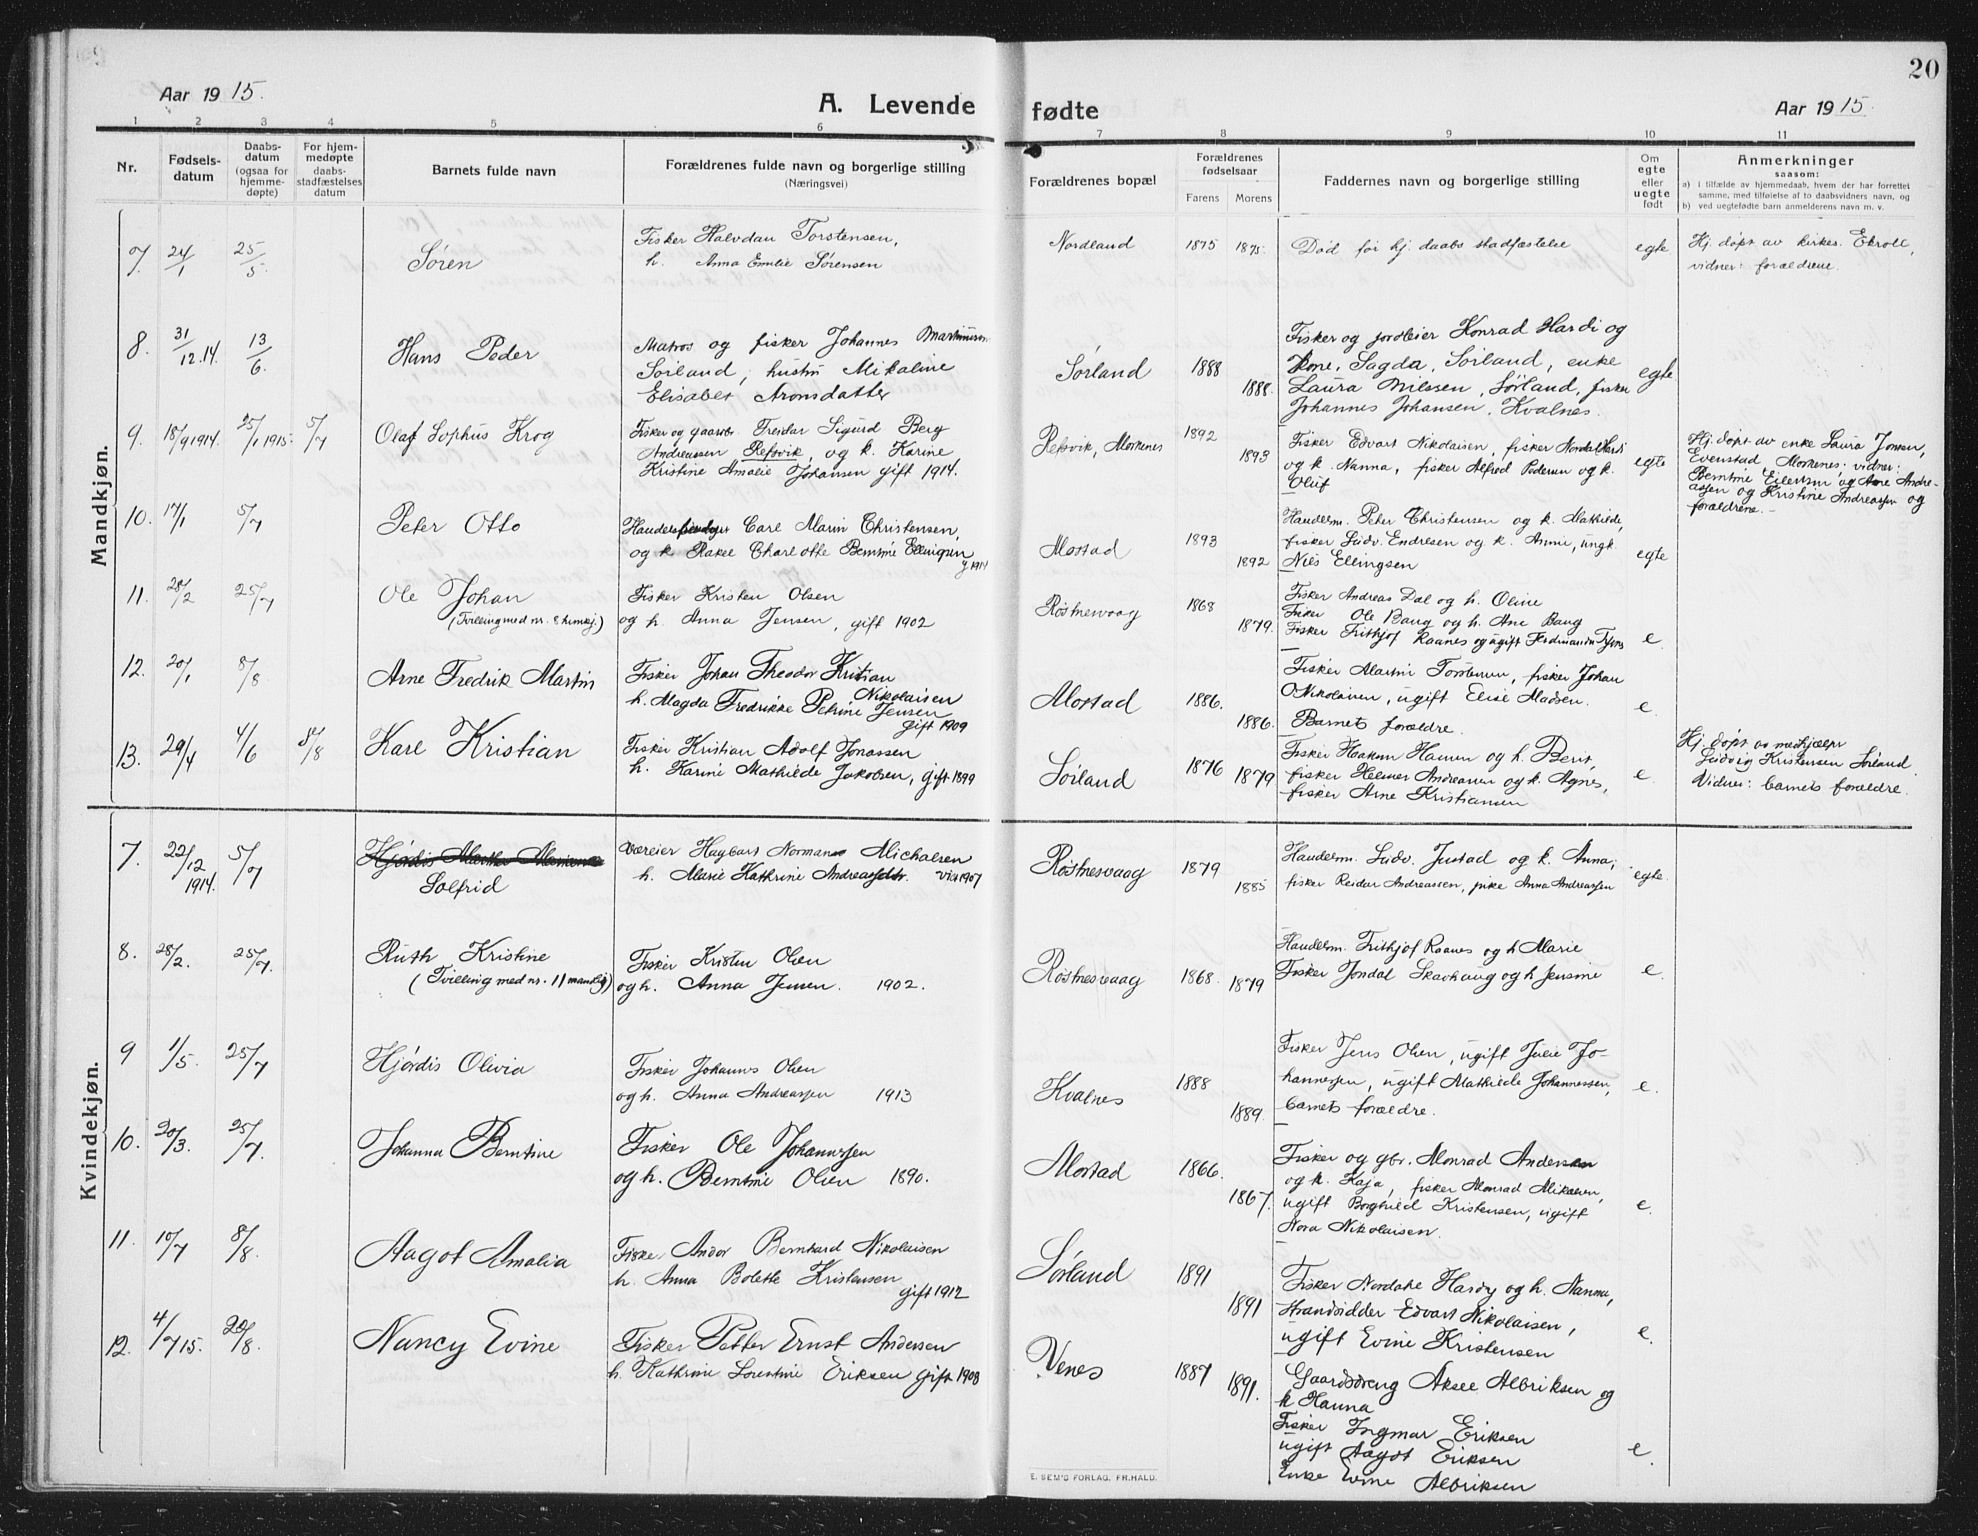 Aar 1915.
A. Levende
fødte
Aar 1915.
20
1 2 3 4 5 6 7 8 9 10 11
Nr.
Fødsels-
datum
Daabs-
datum
(ogsaa for
hjemme-
døpte)
For hjem-
medøpte
daabs-
stadfæstelses
datum
Barnets fulde navn
Forældrenes fulde navn og borgerlige stilling
(Næringsvei)
Forældrenes bopæl
Forældrenes
fødselsaar
Farens Morens
Faddernes navn og borgerlige stilling
Om
egte
eller
uegte
født
Anmerkninger
saasom:
a) i tilfælde av hjemmedaab, hvem der har forrettet
samme, med tilføielse af to daabsvidners navn, og
b) ved uegtefødte barn anmelderens navn m. v.
Mandkjøn.
7. 24/1 25/5
Søren
Fisker Halvdan Torstensen,
h. Anna Emilie Sørensen
Nordland 1875 1875.
Død før hj. daabs stadfæstelse
egte
Hj. døpt av kirkes. Ekroll,
vidner: forældrene.
8. 31/12.14. 13/6.
Hans Peder
Matros og fisker Johannes
Sørland, hustru Mikaline
Elisabet Aronsdatter
Sørland 1888 1888.
Fisker og jordeier Konrad Hardi og
kone, Sagda, Sørland, enke
Laura Nilssen, Sørland, fisker
Johannes Johansen, Kvalnes.
egte
9. 18/9 1914. 25/1 1915. 5/7
Olaf Sophus Krog
Fisker og gaardbr. Freidar Sigurd Berg
Andreassen Refsvik, og k. Karine
Kristine Amalie Johansen gift 1914.
Refsvik, Moskenes 1892 1893
Fisker Edvart Nikolaisen, fisker Nordal Hardi
og k. Nanna, fisker Alfred Pedersen og k.
Oluf
egte
Hj. døpt av enke Laura Jensen,
Evenstad Moskenes: vidner:
Berntine Eilertsen og Arne Andre-
assen og Kristine Andreassen og
forældrene. -
10. 17/1 5/7
Peter Otto
Carl Marin Christensen,
og k. Rakel Charlotte Berntine Ellingsen
g. 1914
Mostad 1893 1892
Handelsm. Peter Christensen og k. Mathilde,
fisker Ludv. Endresen og k. Annie, ungk.
Nils Ellingsen
egte
11. 28/2 25/7
Ole Johan
(Tvilling med nr. 8 kvinkj.)
Fisker Kristen Olsen
og h. Anna Jensen, gift 1902
Røstnesvaag 1868 1879.
Fisker Andreas Dal og h. Oline
Fisker Ole Baug og h. Ane Baug
Fisker Frithjof Raanes og ugift Ferdinanda
e
12. 20/1 8/8
Arne Fredrik Martin
Fisker Johan Theodor Kristian
Nikolaisen
h. Magda Fredrikke Petrine Jensen
gift 1909
Mostad 1886. 1886.
Fisker Martin Torstensen, fisker Johan
Nikolaisen, ugift Elise Madsen.
Barnets forældre.
e
13. 29/4 4/6 8/8
Karl Kristian
Fisker Kristian Adolf Jonassen
h. Karine Mathilde Jakobsen, gift 1899
Sørland 1876 1879
Fisker Haakon Hansen og h. Berit,
fisker Helmer Andreassen og k. Agnes,
fisker Arne Kristiansen
e
Hj. døpt av medhjælper
Ludvig Kristensen Sørland
Vidner: barnets forældre.
Kvindekjøn.
7. 22/12 1914. 5/7
Solfrid
Væreier Hagbart Norman Michalsen
h. Marie Kathrine Andreasdtr. viet 1907
Røstnesvaag 1879 1885
Handelsm. Ludv. Justad og k. Anna,
fisker Reidar Andreassen, pike Anna Andreassen
egte.
8. 28/2. 25/7.
Ruth Kristine
(Tvilling med nr. 11 mandkj)
Fisker Kristen Olsen
og h. Anna Jensen. 1902.
Røstnesvaag 1868. 1879
Handelsm. Frithjof Raanes og h Marie
Fisker Jondal Skavhaug og h Jensine
e.
9 1/5. 25/7
Hjørdis Olivia
Fisker Johannes Olsen
og h. Anna Andreassen 1913
Kvalnes 1888 1889.
Fisker Jens Olsen, ugift Julie Jo-
hannessen, ugift Mathilde Johannessen,
barnets forældre.
e.
10. 20/3. 25/7.
Johanna Berntine
Fisker Ole Johannessen
og h. Berntine Olsen 1890.
Mostad 1866. 1867.
Fisker og gbr. Monrad Andersen
og k. Kaja, fisker Monrad Mikalsen,
ugift Borghild Kristensen, ugift
Nora Nikolaisen.
e.
11. 10/7 8/8.
Aagot Amalia
Fisker Andor Bernhard Nikolaisen
h. Anna Bolette Kristensen
gift 1912
Sørland 1891 1891
Fisker Nordahl Hardy og h. Nanna,
strandsidder Edvart Nikolaisen,
ugift Evine Kristensen
e.
12. 4/7 15. 20/8.
Nancy Evine
Fisker Petter Ernst Andersen
h. Kathrine Lorentine Eriksen gift 1908
Venes 1887 1891.
Gaardsdreng Aksel Albriksen og
k Hanna
Fisker Ingmar Eriksen
ugift Aagot Eriksen
Enke Evine Albriksen
e
E. SEM'S FORLAG, FR.HALD.